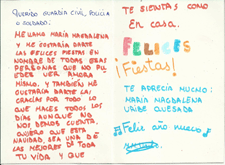 QUERIDO GUARDIA CIVIL, POLICÍA
O SOLDADO:
ME LLAMO MARÍA MAGDALENA
Y ME GUSTARÍA DARTE
LAS FELICES FIESTAS EN
NOMBRE DE TODAS ESAS
PERSONAS QUE NO PU
EDES VER AHORA
MISMO. Y TAMBIÉN ME
GUSTARÍA DARTE LAS
GRACIAS POR TODO LO
QUE HACES TODOS LOS
DÍAS AUNQUE NO
NOS DEMOS CUENTA.
QUIERO QUE ESTA
NAVIDAD, SEA UNA DE
LAS MEJORES DE TODA
TU VIDA Y QUE
TE SIENTAS COMO
En casa.
FELICES
¡Fiestas!
TE APRECIA MUCHO:
MARÍA MAGDALENA
URIBE QUESADA
¡Feliz año nuevo!